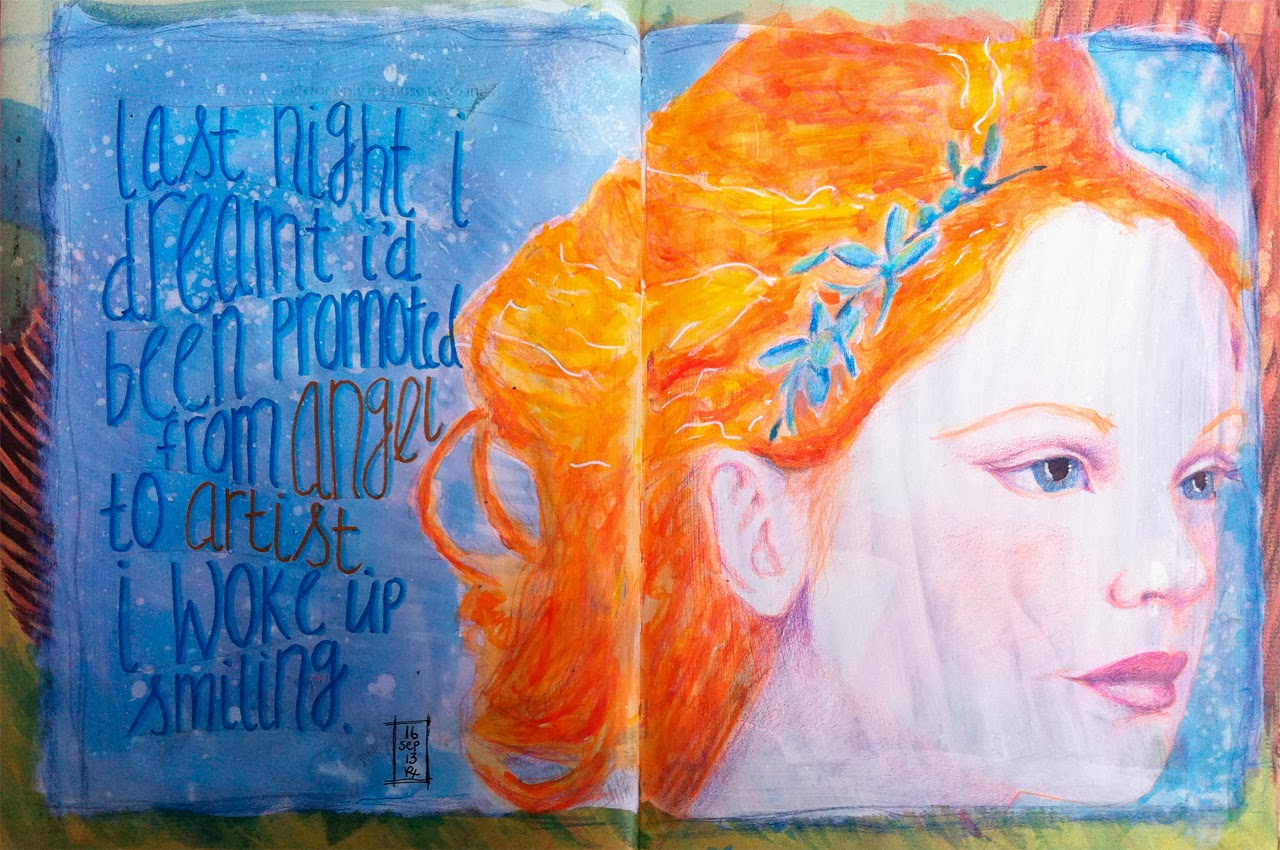 last night i
dreamt i'd
been promoted
from angel
to artist.
i woke up
smiling.
16
sep
13